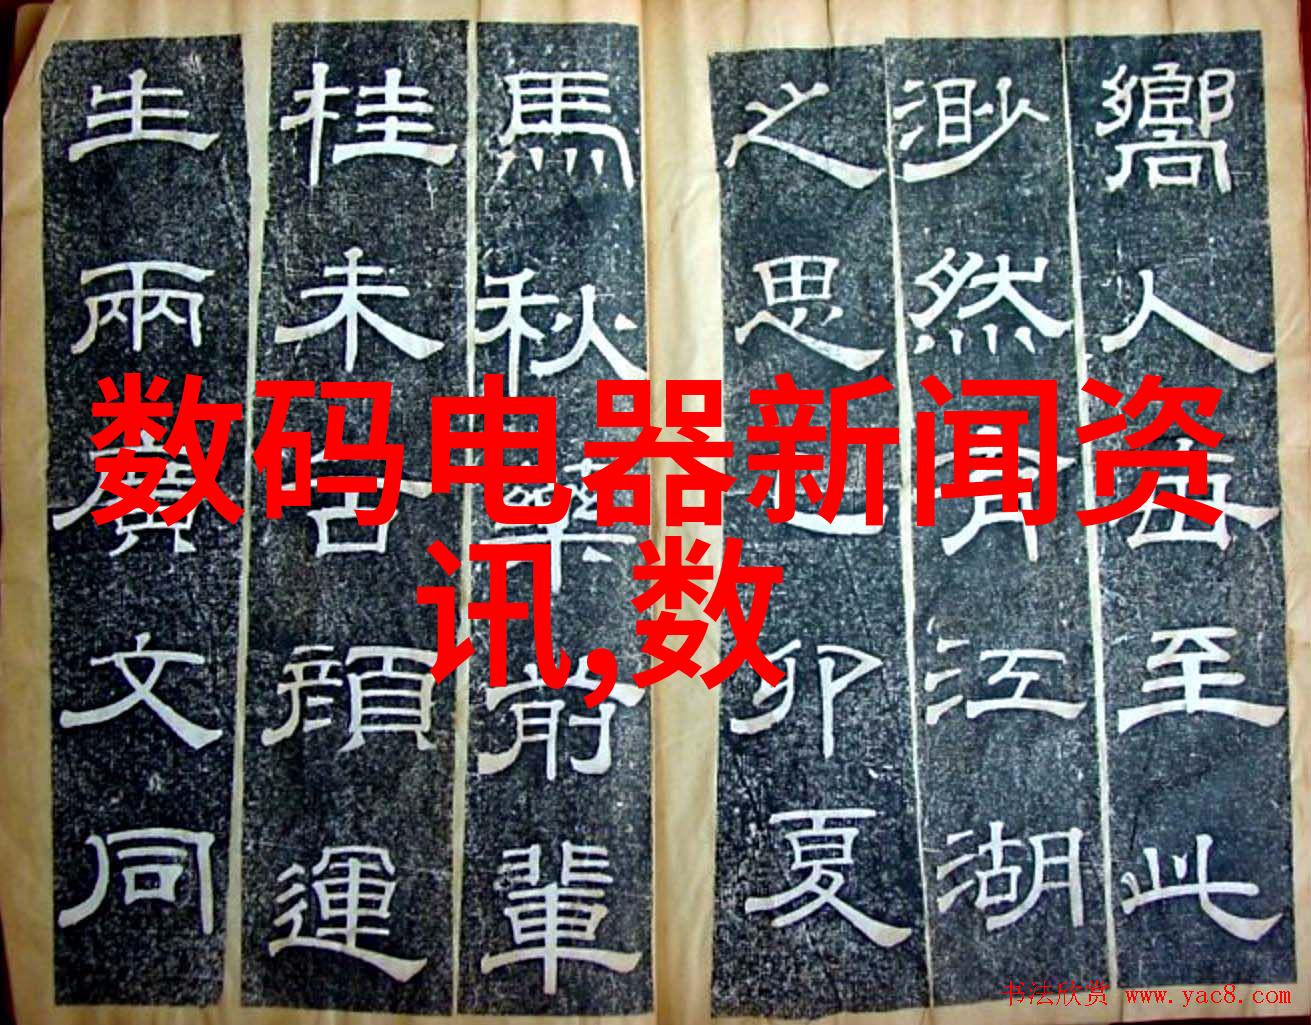 数码电器新闻资
讯,数
嚮人至此
渺然有江湖
之思卯夏
馬秋藥前輩
桂未谷顏運
生兩廣文同
书法欣赏 www.yac8.com